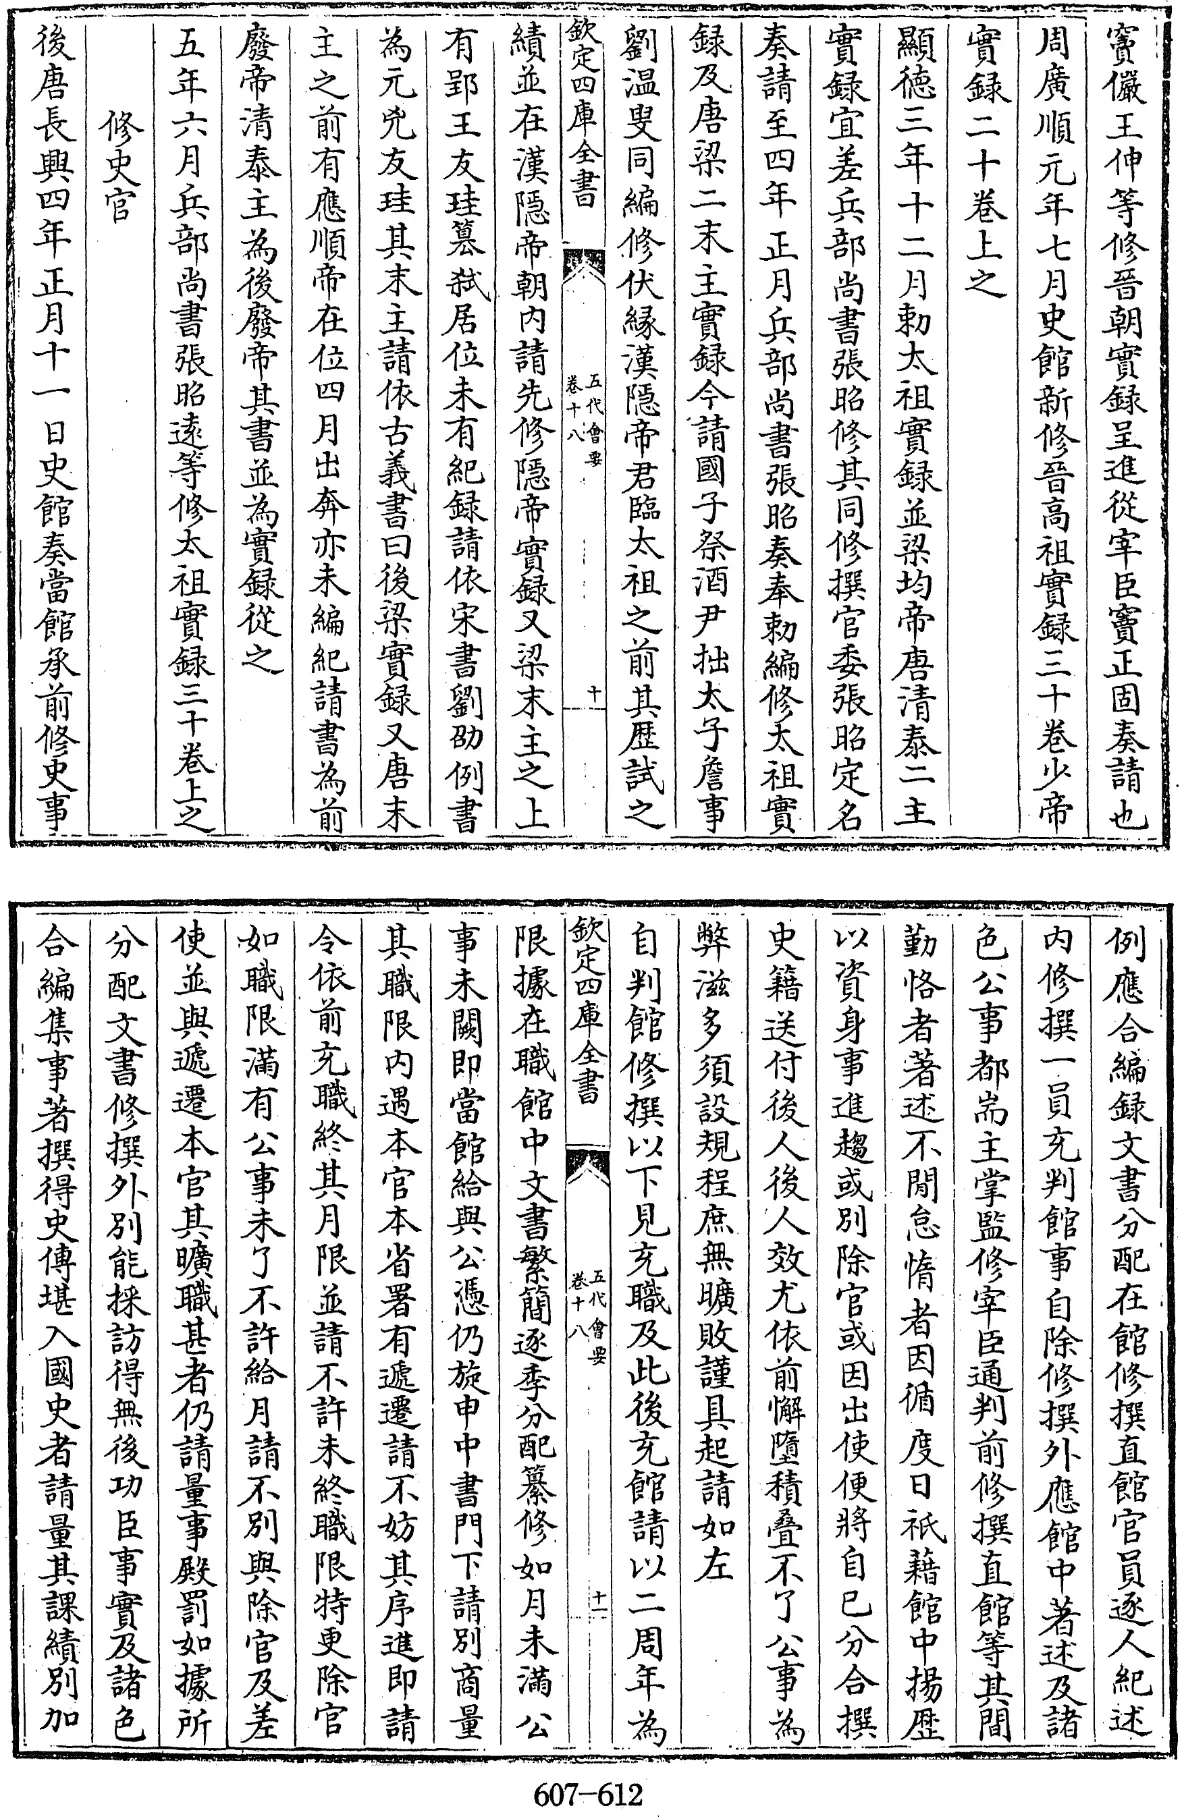 竇儼王伸等修晉朝實録呈進從宰臣竇正固奏請也
周廣順元年七月史館新修晉高祖實録三十卷少帝
實録二十卷上之
顯徳三年十二月勅太祖實録並梁均帝唐清泰二主
實録宜差兵部尚書張昭修其同修撰官委張昭定名
奏請至四年正月兵部尚書張昭奏奉勅編修太祖實
録及唐梁二末主實録今請國子祭酒尹拙太子詹事
劉温叟同編修伏縁漢隠帝君臨太祖之前其歴試之
欽定四庫全書
五代會要
卷十八
十
績並在漢隠帝朝内請先修隠帝實録又梁末主之上
有郢王友珪簒弑居位未有紀録請依宋書劉劭例書
為元兇友珪其末主請依古義書曰後梁實録又唐末
主之前有應順帝在位四月出奔亦未編紀請書為前
廢帝清泰主為後廢帝其書並為實録從之
五年六月兵部尚書張昭逺等修太祖實録三十卷上之
修史官
後唐長興四年正月十一日史館奏當館承前修史事
例應合編録文書分配在館修撰直館官員逐人紀述
内修撰一員充判館事自除修撰外應館中著述及諸
色公事都耑主掌監修宰臣通判前修撰直館等其間
勤恪者著述不閒怠惰者因循度日祇藉館中揚歴
以資身事進趨或别除官或因出使便將自已分合撰
史籍送付後人後人效尤依前懈墮積疊不了公事為
弊滋多須設規程庶無曠敗謹具起請如左
自判館修撰以下見充職及此後充館請以二周年為
欽定四庫全書
五代會要
卷十八
十一
限據在職館中文書繁簡逐季分配纂修如月未滿公
事未闕即當館給與公憑仍旋申中書門下請别商量
其職限内遇本官本省署有遞遷請不妨其序進即請
令依前充職終其月限並請不許未終職限特更除官
如職限滿有公事未了不許給月請不別與除官及差
使並與遞遷本官其曠職甚者仍請量事殿罰如據所
分配文書修撰外別能採訪得無後功臣事實及諸色
合編集事著撰得史傳堪入國史者請量其課績別加
607-612